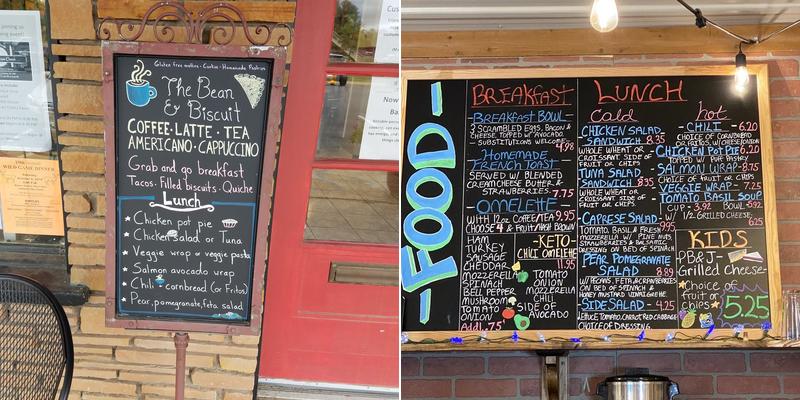 Gluten free muffins • Cookies • Homemade Pastries
The Bean
& Biscuit
COFFEE • LATTE • TEA
AMERICANO • CAPPUCCINO
Grab and go breakfast
Tacos • Filled biscuits • Quiche
Lunch
★ Chicken pot pie
★ Chicken salad or Tuna
★ Veggie wrap or veggie pasta
★ Salmon avocado wrap
★ Chili + cornbread (or Fritos)
★ Pear, pomegranate, feta salad
WILD GAME DINNER
-FOOD-
BREAKFAST
-BREAKFAST BOWL-
3 SCRAMBLED EGGS, BACON &
CHEESE TOPPED W/AVOCADO
SUBSTITUTIONS WELCOME
4.98
HOMEMADE
FRENCH TOAST
SERVED W/ BLENDED
CREAM CHEESE BUTTER, &
STRAWBERRIES 7.75
-OMELETTE
WITH 12oz COFFEE/TEA 9.95
CHOOSE 4 & FRUIT/
HAM
TURKEY
SAUSAGE
CHEDDAR
MOZZERELLA
SPINACH
BELL PEPPER
MUSHROOM
TOMATO
ONION
Add'l .75
-KETO-
CHILI OMELETTE
11.95
TOMATO
ONION
MOZZERELLA
CHILI
SIDE OF
AVOCADO
LUNCH
Cold
CHICKEN SALAD
SANDWICH 8.35
WHOLE WHEAT OR
CROISSANT. SIDE OF
FRUIT OR CHIPS
TUNA SALAD
SANDWICH 8.35
WHOLE WHEAT OR
CROISSANT SIDE OF
FRUIT OR CHIPS.
-CAPRESE SALAD-
7.95
TOMATO, BASIL & FRESH
MOZZERELLA W/ PINE NUTS
STRAWBERRIES & BALSAMIC
DRESSING ON BED OF SPINACH
PEAR POMEGRANATE
SALAD 8.89
W/PECANS, FETA & CRANBERRIES
ON BED OF SPINACH &
HONEY MUSTARD VINAIGRETTE
SIDE SALAD - 4.25
LETTUCE, TOMATO, CARROT, RED CABBAGE
CHOICE OF DRESSING
hot
-CHILI- 6.20
CHOICE OF CORNBREAD
OR FRITOS, W/CHEESE/ONION
CHICKEN POT PIE 6.20
TOPPED W/ PUFF PASTRY
SALMON WRAP - 8.75
CHOICE OF FRUIT OR CHIPS
VEGGIE WRAP - 7.25
TOMATO BASIL SOUP
CUP 3.92 BOWL 5.92
W/ 1/2 GRILLED CHEESE
6.25
KIDS
PB&J-
Grilled Cheese-
★Choice of
fruit or
chips★
5.25